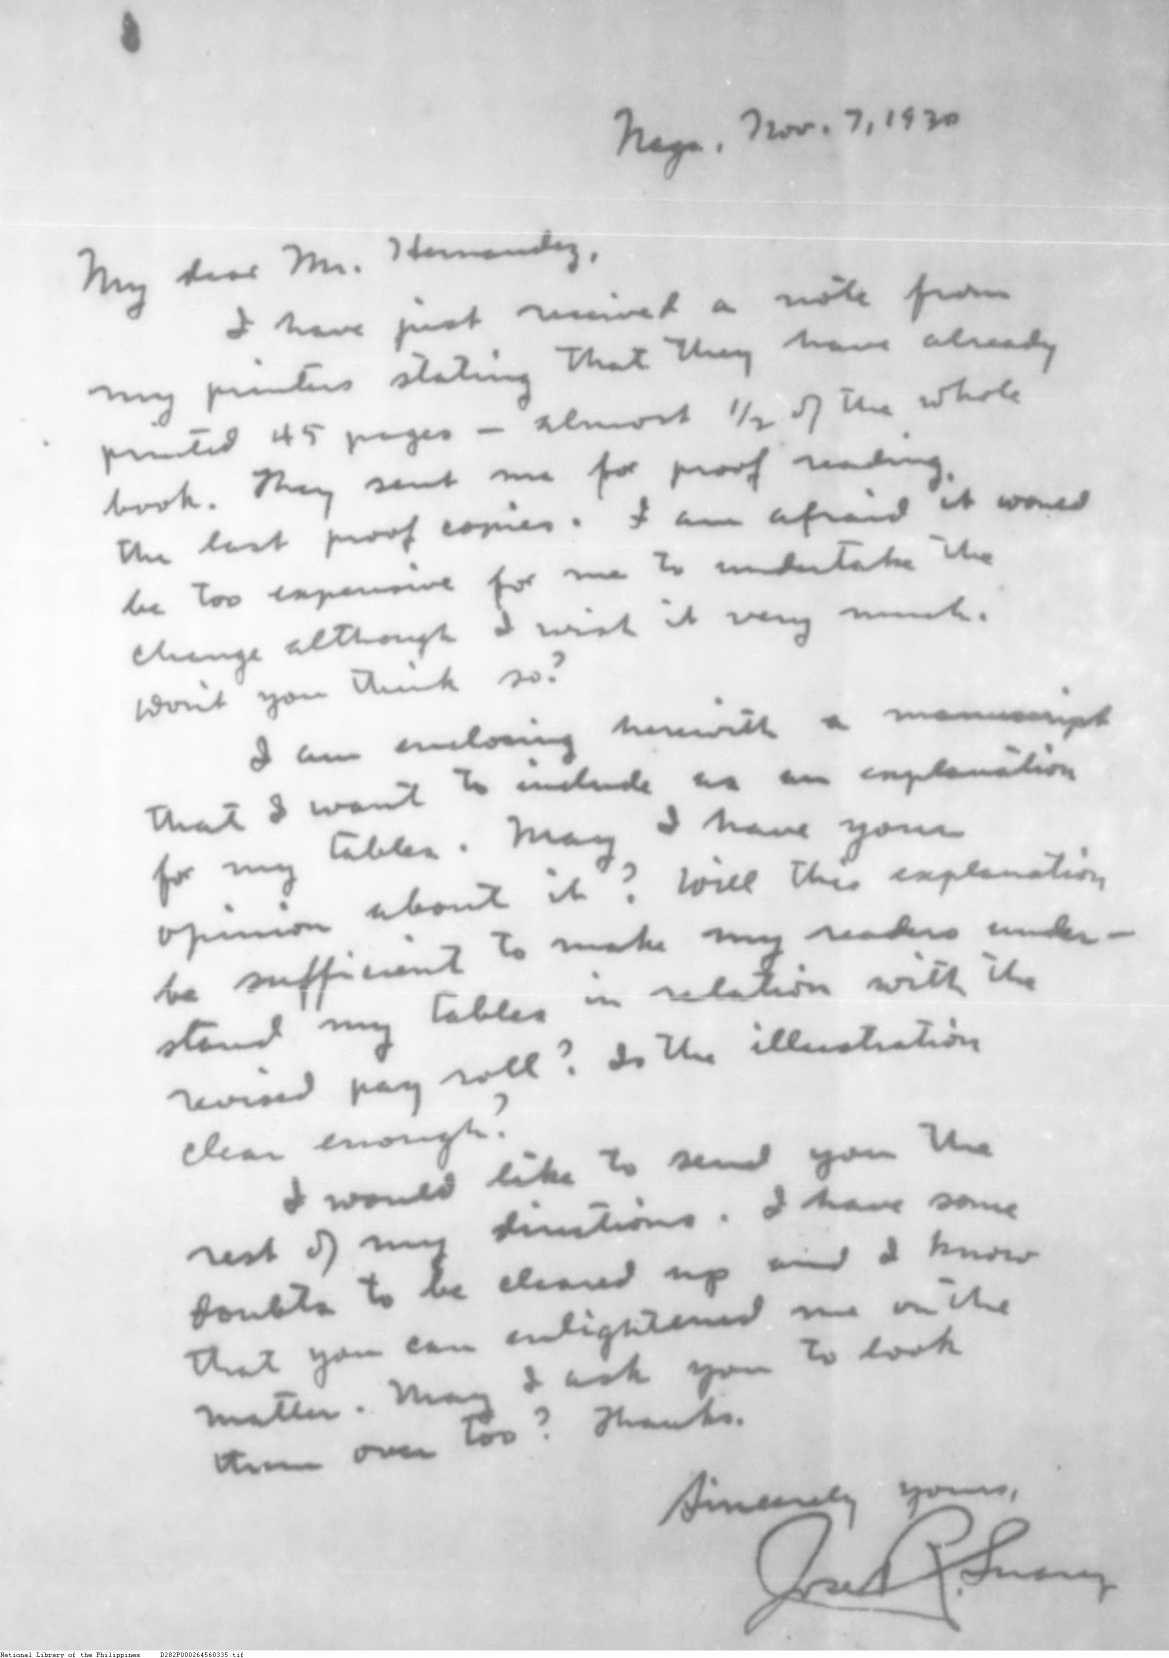 Naga, Nov. 7, 1930
My dear Mr. Hernandez,
I have just received a note from
my printers stating that they have already
printed 45 pages — almost 1/2 of the whole
book. They sent me for proof reading,
the last proof copies. I am afraid it would
be too expensive for me to undertake the
change although I wish it very much.
Won't you think so?
I am enclosing herewith a manuscript
that I want to include as an explanation
for my tables. May I have your
opinion about it? Will this explanation
be sufficient to make my readers under-
stand my tables in relation with the
revised pay roll? Is the illustration
clear enough?
I would like to send you the
rest of my directions. I have some
doubts to be cleared up and I know
that you can enlightened me on the
matter. May I ask you to look
them over too? Thanks.
Sincerely yours,
Jose R.
National Library of the Philippines D282P000264560335.tif